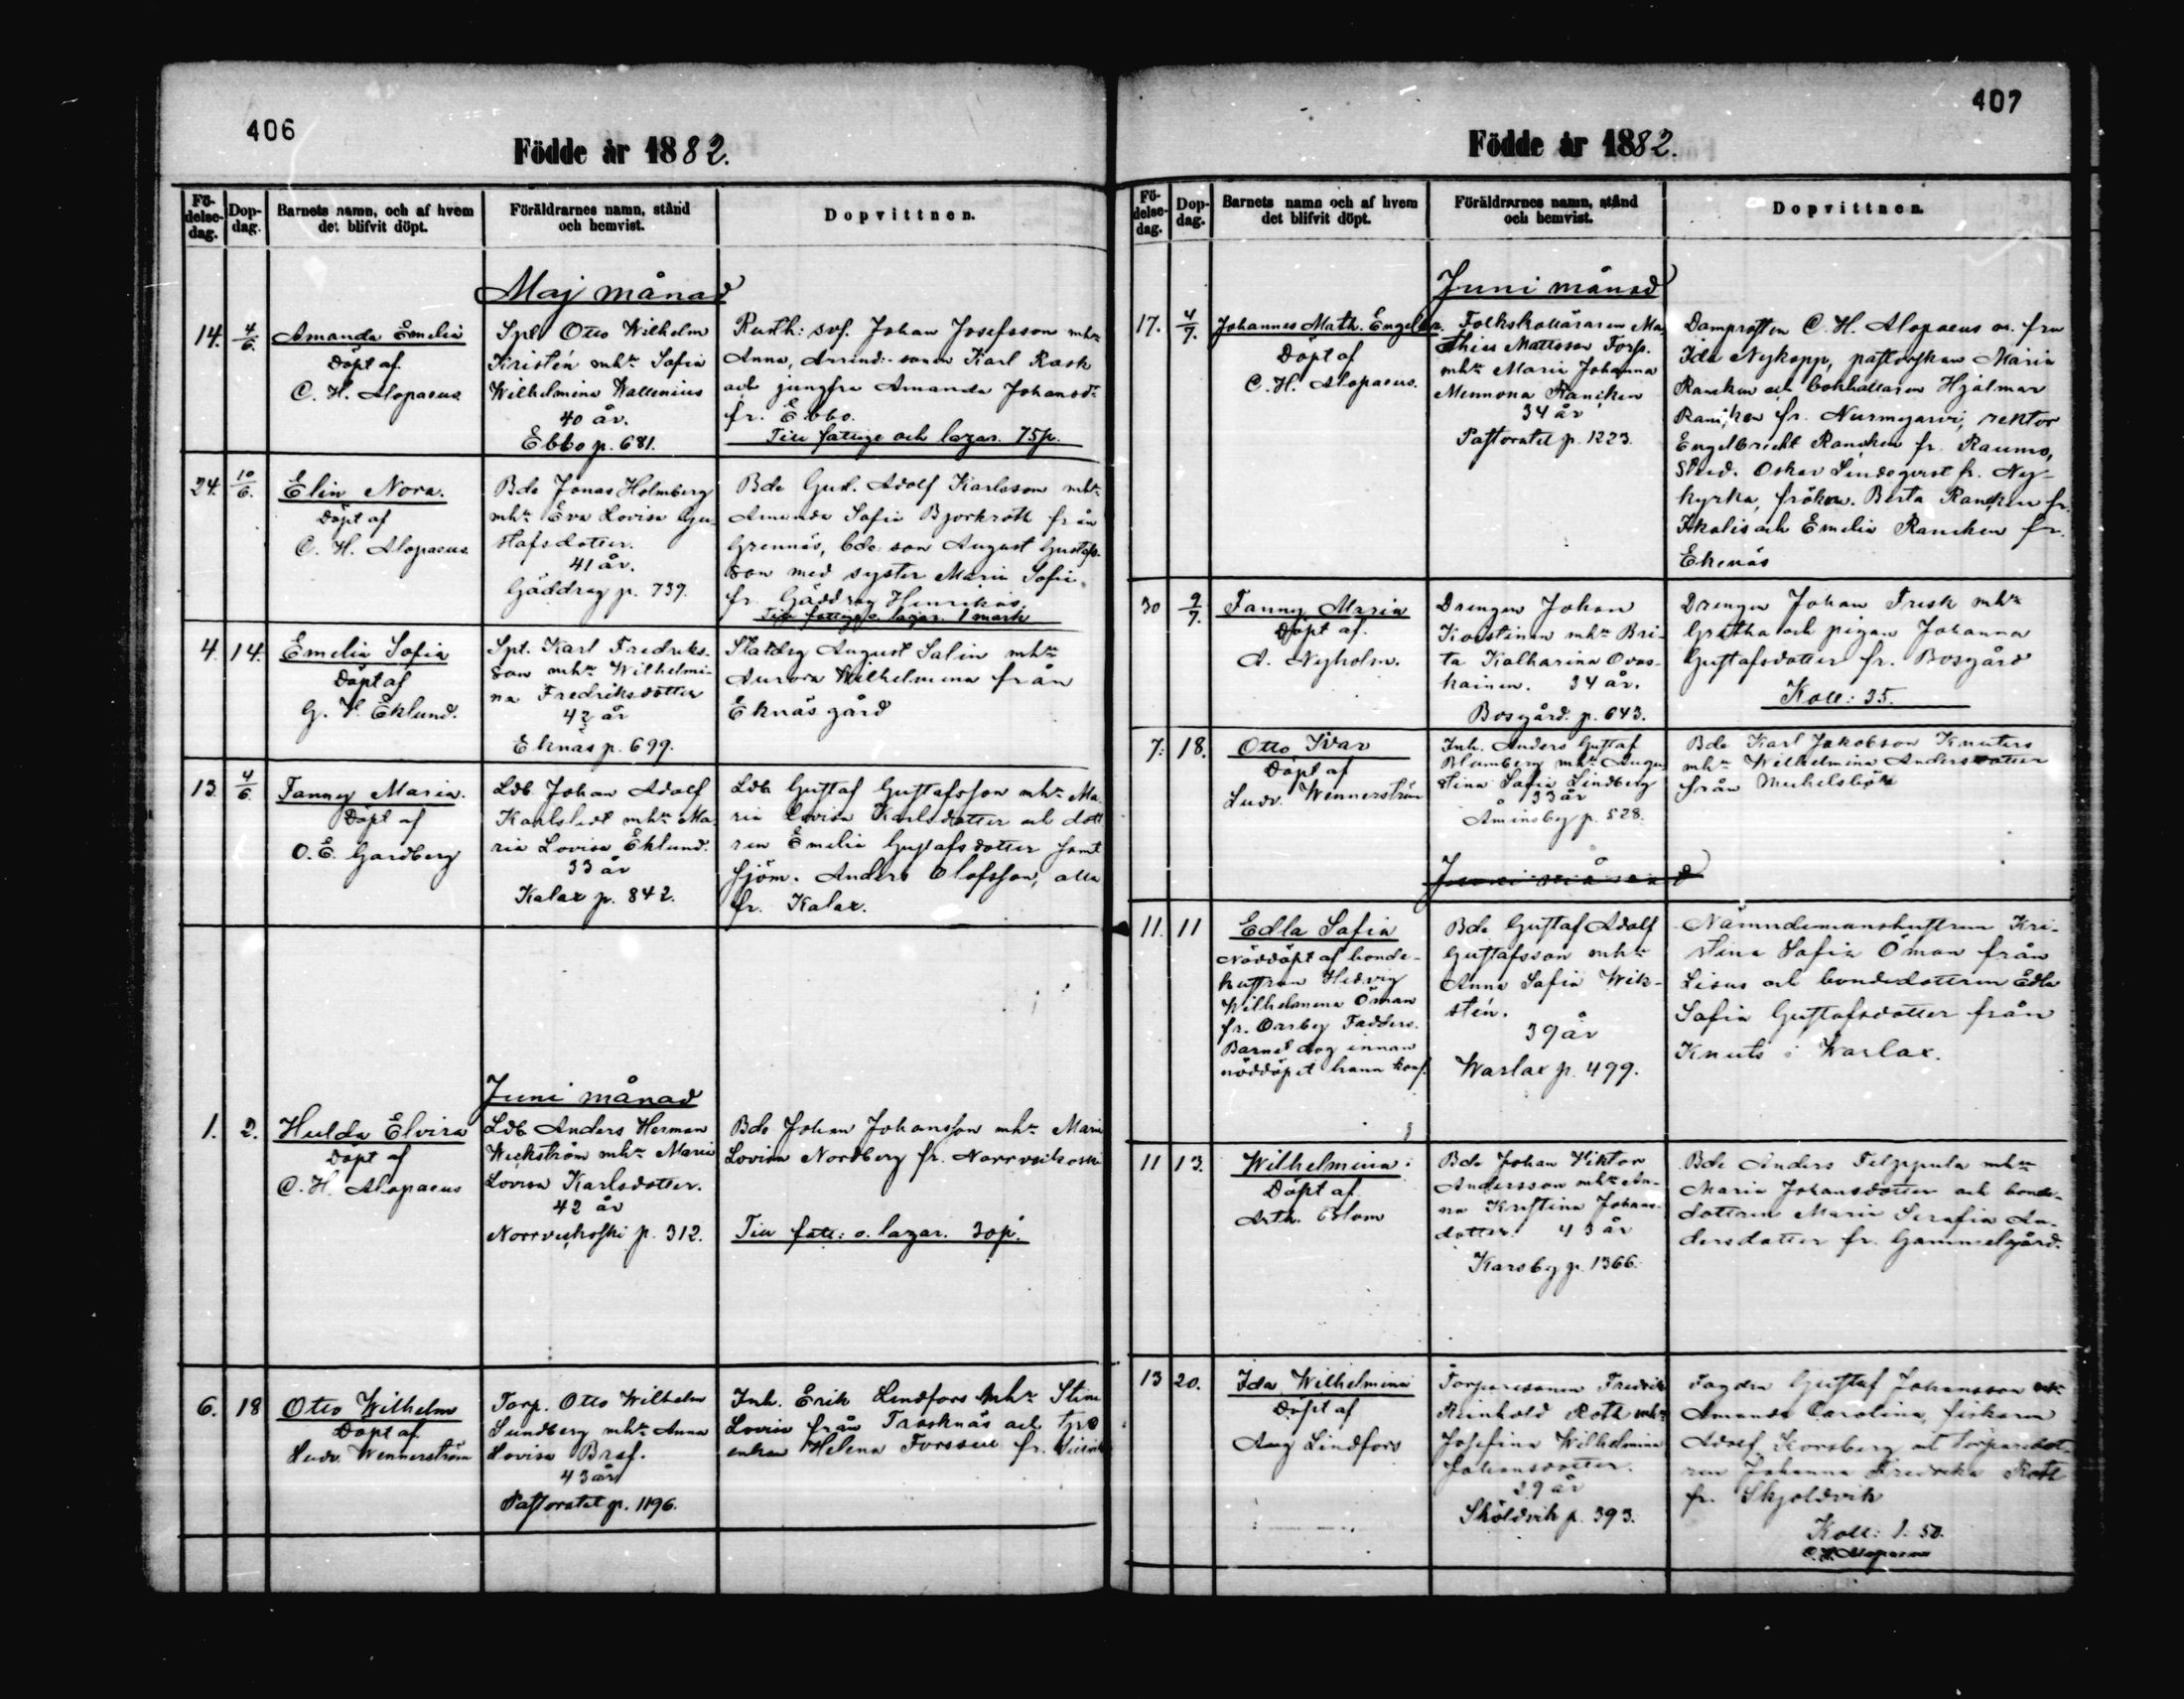 406
Födde år 1882.
Fö-
delse-
dag.
Dop-
dag.
Barnets namn, och af hvem
det blifvit döpt.
Föräldrarnes namn, stånd
och hemvist.
Dopvittnen.
Maj månad
14. 4/6.
Amanda Emelia
Döpt af
C. H. Alopaeus.
Spl Otto Wilhelm
Kristén mhr Sofia
Wilhelmina Wallenius
40 år.
Ebbo p. 681.
Rusth: sof. Johan Josefsson mhr
Anna, Arrind: sonen Karl Rask
och jungfru Amanda Johansdr
fr. Ebbo.
Till fattige och lazar. 75p.
24. 10/6.
Elin Nora.
Döpt af
C. H. Alopaeus.
Bde Jonas Holmberg
mhr Eva Lovisa Gu-
stafsdotter.
41 år.
Gäddrag p. 739.
Bde Gust. Adolf Karlsson mhr
Amanda Sofia Bjorkroth från
Grennäs, bde son August Gustafs-
son med syster Maria Sofia
fr. Gäddrag Henrikas.
Till fattige o. lazar. 1 mark
4. 14.
Emelia Sofia
Döpt af
G. V. Eklund.
Spt. Karl Fredriks-
son mhr Wilhelmi-
na Fredriksdotter
42 år
Eknäs p. 699.
Statdrg August Salin mhr
Aurora Wilhelmina från
Eknäs gård
13 4/6
Fanny Maria.
Döpt af
O. E. Gardberg
Ldb. Johan Adolf
Karlstedt mhr Ma-
ria Lovisa Eklund.
33 år
Kalax p. 842.
Ldb. Gustaf Gustafsson mhr Ma-
ria Lovisa Karlsdotter och dott
ren Emelia Gustafsdotter samt
sjöm. Anders Olofsson, alla
fr. Kalax.
Juni månad
1. 2.
Hulda Elvira
Döpt af
C. H. Alopaeus
Ldb. Anders Herman
Weckström mhr Maria
Lovisa Karlsdotter.
42 år
Norrveckoski p. 312.
Bde Johan Johansson mhr Maria
Lovisa Nordberg fr. Norrveckoski
Till fatt: o. lazar. 30p.
6. 18
Otto Wilhelm
Döpt af
Ludv. Wennerström
Torp. Otto Wilhelm
Sundberg mhr Anna
Lovisa Braf.
43 år
Pastoratet p. 1196.
Inh. Erik Lindfors mhr Stina
Lovisa från Trasknäs och
enkan Helena Forssell fr.
407
Födde år 1882.
Fö-
delse-
dag.
Dop-
dag.
Barnets namn och af hvem
det blifvit döpt.
Föräldrarnes namn, stånd
och hemvist.
Dopvittnen.
Juni månad
17. 4/7.
Johannes Math. Engelbr.
Döpt af
C. H. Alopaeus.
Folkskolläraren Ma-
thias Mattsson Forss.
mhr Maria Johanna
Mennona Rancken
34 år
Pastoratet p. 1223.
Domprosten C. H. Alopaeus o. fru
Ida Nykopp, pastorskan Maria
Rancken och bokhållaren Hjalmar
Rancken fr. Nurmijärvi, rektor
Engelbrecht Rancken fr. Raumo,
Stud. Oskar Lindeqvist fr. Ny-
kyrka, fröken. Berta Rancken fr.
Ikalis och Emelia Rancken fr.
Ekenäs
30 9/7.
Fanny Maria
Döpt af.
A. Nyholm.
Drengen Johan
Koistinen mhr Bri-
ta Katharina Ovas-
kainen. 34 år.
Bosgård. p. 643.
Drengen Johan Frisk mhr
Gretha och pigan Johanna
Gustafsdotter fr. Bosgård
Koll: 35.
7. 18.
Otto Ivar
Döpt af
Ludv. Wennerström
Inh. Anders Gustaf
Blomberg mhr Augu
stina Sofia Lindberg
33 år
Åminsby p. 528.
Bde Karl Jakobson Knuters
mhr Wilhelmina Andersdotter
från Mickelsböle
Juni månad
11. 11
Edla Sofia
Nöddöpt af bonde-
hustrun Hedvig
Wilhelmina Öman
fr. Orrby Fadders.
Barnet dog innan
nöddopet hann konf.
Bde Gustaf Adolf
Gustafsson mhr
Anna Sofia Wik-
stén.
39 år
Warlax p. 499.
Nämndemanshustrun Kri-
stina Sofia Öman från
Lisus och bondedottren Edla
Sofia Gustafsdotter från
Knuts i Warlax.
11 13.
Wilhelmina.
Döpt af
Arth. Blom
Bde Johan Viktor
Andersson mhr An-
na Kristina Johans-
dotter. 43 år
Karsby p. 1366.
Bde Anders Filppula mhr
Maria Johansdotter och bonde-
dottren Maria Serafia An-
dersdotter fr. Gammelgård.
13 20.
Ida Wilhelmina
Döpt af
Aug Lindfors
Torparesonen Fredrik
Reinhold Roth mhr
Josefina Wilhelmina
Johansdotter.
29 år
Sköldvik p. 393.
Fogden Gustaf Johansson mhr
Amanda Carolina, fiskaren
Adolf Korsberg och torparedot-
ren Johanna Fredrika Roth
fr. Skjoldvik
Koll: 1.50.
C. H. Alopaeus